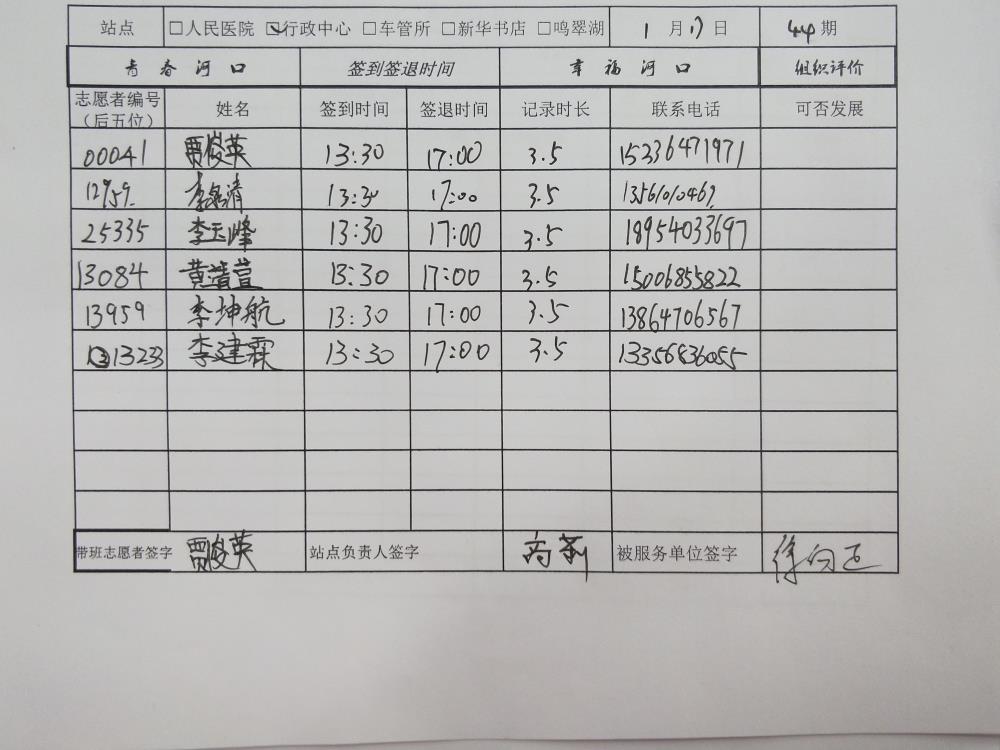 站点 □人民医院 ☑行政中心 □车管所 □新华书店 □鸣翠湖 1月17日 44期
青春河口 签到签退时间 幸福河口 组织评价
志愿者编号（后五位） 姓名 签到时间 签退时间 记录时长 联系电话 可否发展
00041 贾俊英 13:30 17:00 3.5 15236471971
12959 13:30 17:00 3.5
25335 李玉峰 13:30 17:00 3.5 18954033697
13084 黄靖萱 13:30 17:00 3.5 15006855822
13959 李坤航 13:30 17:00 3.5 13864706567
13233 李建霖 13:30 17:00 3.5 13356836055
带班志愿者签字 贾俊英 站点负责人签字 高莉 被服务单位签字